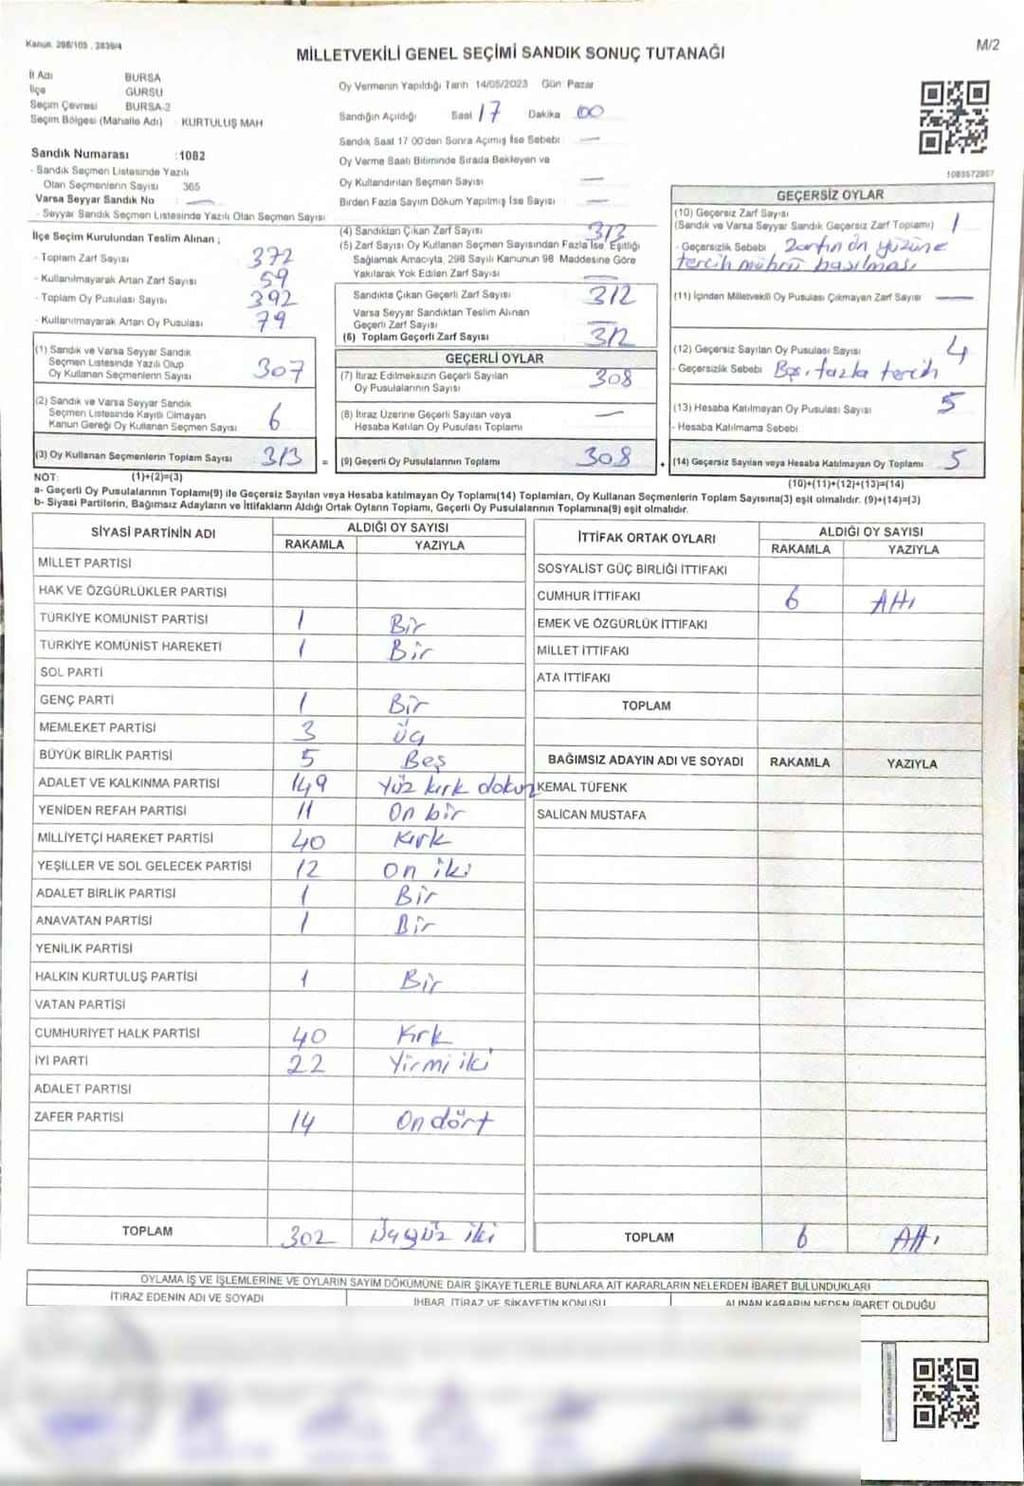 Kanun. 298/105 , 2839/4
MİLLETVEKİLİ GENEL SEÇİMİ SANDIK SONUÇ TUTANAĞI
M/2
İl Adı BURSA
İlçe GÜRSU
Seçim Çevresi BURSA-2
Seçim Bölgesi (Mahalle Adı) : KURTULUŞ MAH
Oy Vermenin Yapıldığı Tarih 14/05/2023 Gün Pazar
Sandığın Açıldığı Saat 17 Dakika 00
Sandık Saat 17 00'den Sonra Açımış İse Sebebi : —
Oy Verme Saati Bitiminde Sırada Bekleyen ve
Oy Kullandırılan Seçmen Sayısı —
Birden Fazla Sayım Döküm Yapılmış İse Sayısı —
Sandık Numarası : 1082
- Sandık Seçmen Listesinde Yazılı
Olan Seçmenlerin Sayısı 365
Varsa Seyyar Sandık No —
- Seyyar Sandık Seçmen Listesinde Yazılı Olan Seçmen Sayısı
1083572957
İlçe Seçim Kurulundan Teslim Alınan ;
- Toplam Zarf Sayısı 372
- Kullanılmayarak Artan Zarf Sayısı 59
- Toplam Oy Pusulası Sayısı 392
- Kullanılmayarak Artan Oy Pusulası 79
(1) Sandık ve Varsa Seyyar Sandık
Seçmen Listesinde Yazılı Olup
Oy Kullanan Seçmenlerin Sayısı 307
(2) Sandık ve Varsa Seyyar Sandık
Seçmen Listesinde Kayıtlı Olmayan
Kanun Gereği Oy Kullanan Seçmen Sayısı 6
(3) Oy Kullanan Seçmenlerin Toplam Sayısı 313 =
(1)+(2)=(3)
(4) Sandıktan Çıkan Zarf Sayısı 313
(5) Zarf Sayısı Oy Kullanan Seçmen Sayısından Fazla İse, Eşitliği
Sağlamak Amacıyla, 298 Sayılı Kanunun 98 Maddesine Göre
Yakılarak Yok Edilen Zarf Sayısı —
Sandıkta Çıkan Geçerli Zarf Sayısı 312
Varsa Seyyar Sandıktan Teslim Alınan
Geçerli Zarf Sayısı —
(6) Toplam Geçerli Zarf Sayısı 312
GEÇERLİ OYLAR
(7) İtiraz Edilmeksizin Geçerli Sayılan
Oy Pusulalarının Sayısı 308
(8) İtiraz Üzerine Geçerli Sayılan veya
Hesaba Katılan Oy Pusulası Toplamı —
(9) Geçerli Oy Pusulalarının Toplamı 308 +
GEÇERSİZ OYLAR
(10) Geçersiz Zarf Sayısı
(Sandık ve Varsa Seyyar Sandık Geçersiz Zarf Toplamı) 1
- Geçersizlik Sebebi Zarfın ön yüzüne
tercih mührü basılması
(11) İçinden Milletvekili Oy Pusulası Çıkmayan Zarf Sayısı —
(12) Geçersiz Sayılan Oy Pusulası Sayısı 4
- Geçersizlik Sebebi fazla tercih
(13) Hesaba Katılmayan Oy Pusulası Sayısı 5
- Hesaba Katılmama Sebebi
(14) Geçersiz Sayılan veya Hesaba Katılmayan Oy Toplamı 5
(10)+(11)+(12)+(13)=(14)
NOT:
a- Geçerli Oy Pusulalarının Toplamı(9) ile Geçersiz Sayılan veya Hesaba katılmayan Oy Toplamı(14) Toplamları, Oy Kullanan Seçmenlerin Toplam Sayısına(3) eşit olmalıdır. (9)+(14)=(3)
b- Siyasi Partilerin, Bağımsız Adayların ve İttifakların Aldığı Ortak Oyların Toplamı, Geçerli Oy Pusulalarının Toplamına(9) eşit olmalıdır.
SİYASİ PARTİNİN ADI ALDIĞI OY SAYISI
RAKAMLA YAZIYLA
MİLLET PARTİSİ
HAK VE ÖZGÜRLÜKLER PARTİSİ
TÜRKİYE KOMÜNİST PARTİSİ 1 Bir
TÜRKİYE KOMÜNİST HAREKETİ 1 Bir
SOL PARTİ
GENÇ PARTİ 1 Bir
MEMLEKET PARTİSİ 3 üç
BÜYÜK BİRLİK PARTİSİ 5 Beş
ADALET VE KALKINMA PARTİSİ 149 Yüz kırk dokuz
YENİDEN REFAH PARTİSİ 11 On bir
MİLLİYETÇİ HAREKET PARTİSİ 40 Kırk
YEŞİLLER VE SOL GELECEK PARTİSİ 12 On iki
ADALET BİRLİK PARTİSİ 1 Bir
ANAVATAN PARTİSİ 1 Bir
YENİLİK PARTİSİ
HALKIN KURTULUŞ PARTİSİ 1 Bir
VATAN PARTİSİ
CUMHURİYET HALK PARTİSİ 40 Kırk
İYİ PARTİ 22 Yirmi iki
ADALET PARTİSİ
ZAFER PARTİSİ 14 On dört
TOPLAM 302 Üçyüz iki
İTTİFAK ORTAK OYLARI ALDIĞI OY SAYISI
RAKAMLA YAZIYLA
SOSYALİST GÜÇ BİRLİĞİ İTTİFAKI
CUMHUR İTTİFAKI 6 Altı
EMEK VE ÖZGÜRLÜK İTTİFAKI
MİLLET İTTİFAKI
ATA İTTİFAKI
TOPLAM
BAĞIMSIZ ADAYIN ADI VE SOYADI RAKAMLA YAZIYLA
KEMAL TÜFENK
SALİCAN MUSTAFA
TOPLAM 6 Altı
OYLAMA İŞ VE İŞLEMLERİNE VE OYLARIN SAYIM DÖKÜMÜNE DAİR ŞİKAYETLERLE BUNLARA AİT KARARLARIN NELERDEN İBARET BULUNDUKLARI
İTİRAZ EDENİN ADI VE SOYADI İHBAR, İTİRAZ VE ŞİKAYETİN KONUSU ALINAN KARARIN NEDEN İBARET OLDUĞU